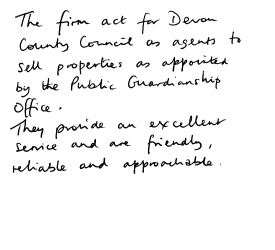 The firm act for Devon
County Council as agents to
sell properties as appointed
by the Public Guardianship
Office.
They provide an excellent
service and are friendly,
reliable and approachable.